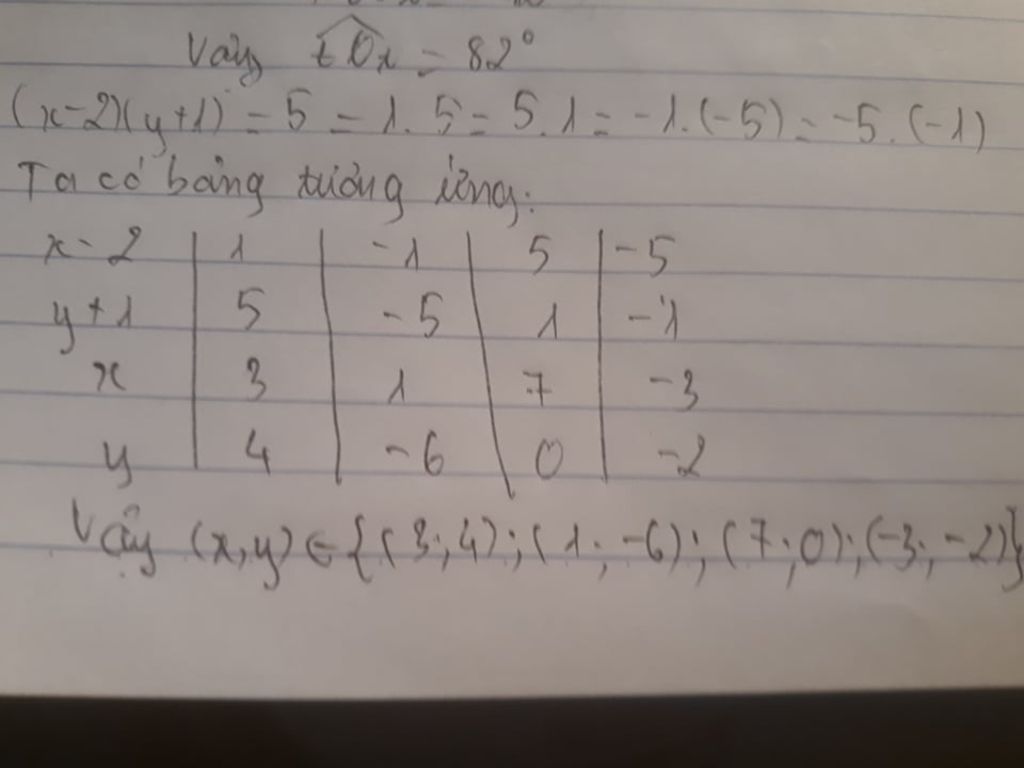 Vậy tOx = 82°
(x-2)(y+1) = 5 = 1. 5 = 5.1 = -1.(-5) = -5.(-1)
Ta có bảng tương ứng:
x-2 | 1 | -1 | 5 | -5
y+1 | 5 | -5 | 1 | -1
x | 3 | 1 | 7 | -3
y | 4 | -6 | 0 | -2
Vậy (x,y) ∈ {(3;4);(1;-6);(7;0);(-3;-2)}